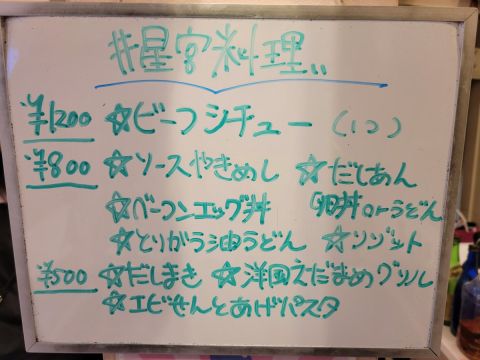 #星宮料理..
¥1200 ☆ビーフシチュー(1つ)
¥800 ☆ソースやきめし ☆だしあん
☆ベーコンエッグ丼 卵丼orうどん
☆とりガラ油うどん ☆リゾット
¥500 ☆だしまき ☆洋風えだまめグリル
☆エビせんとあげパスタ